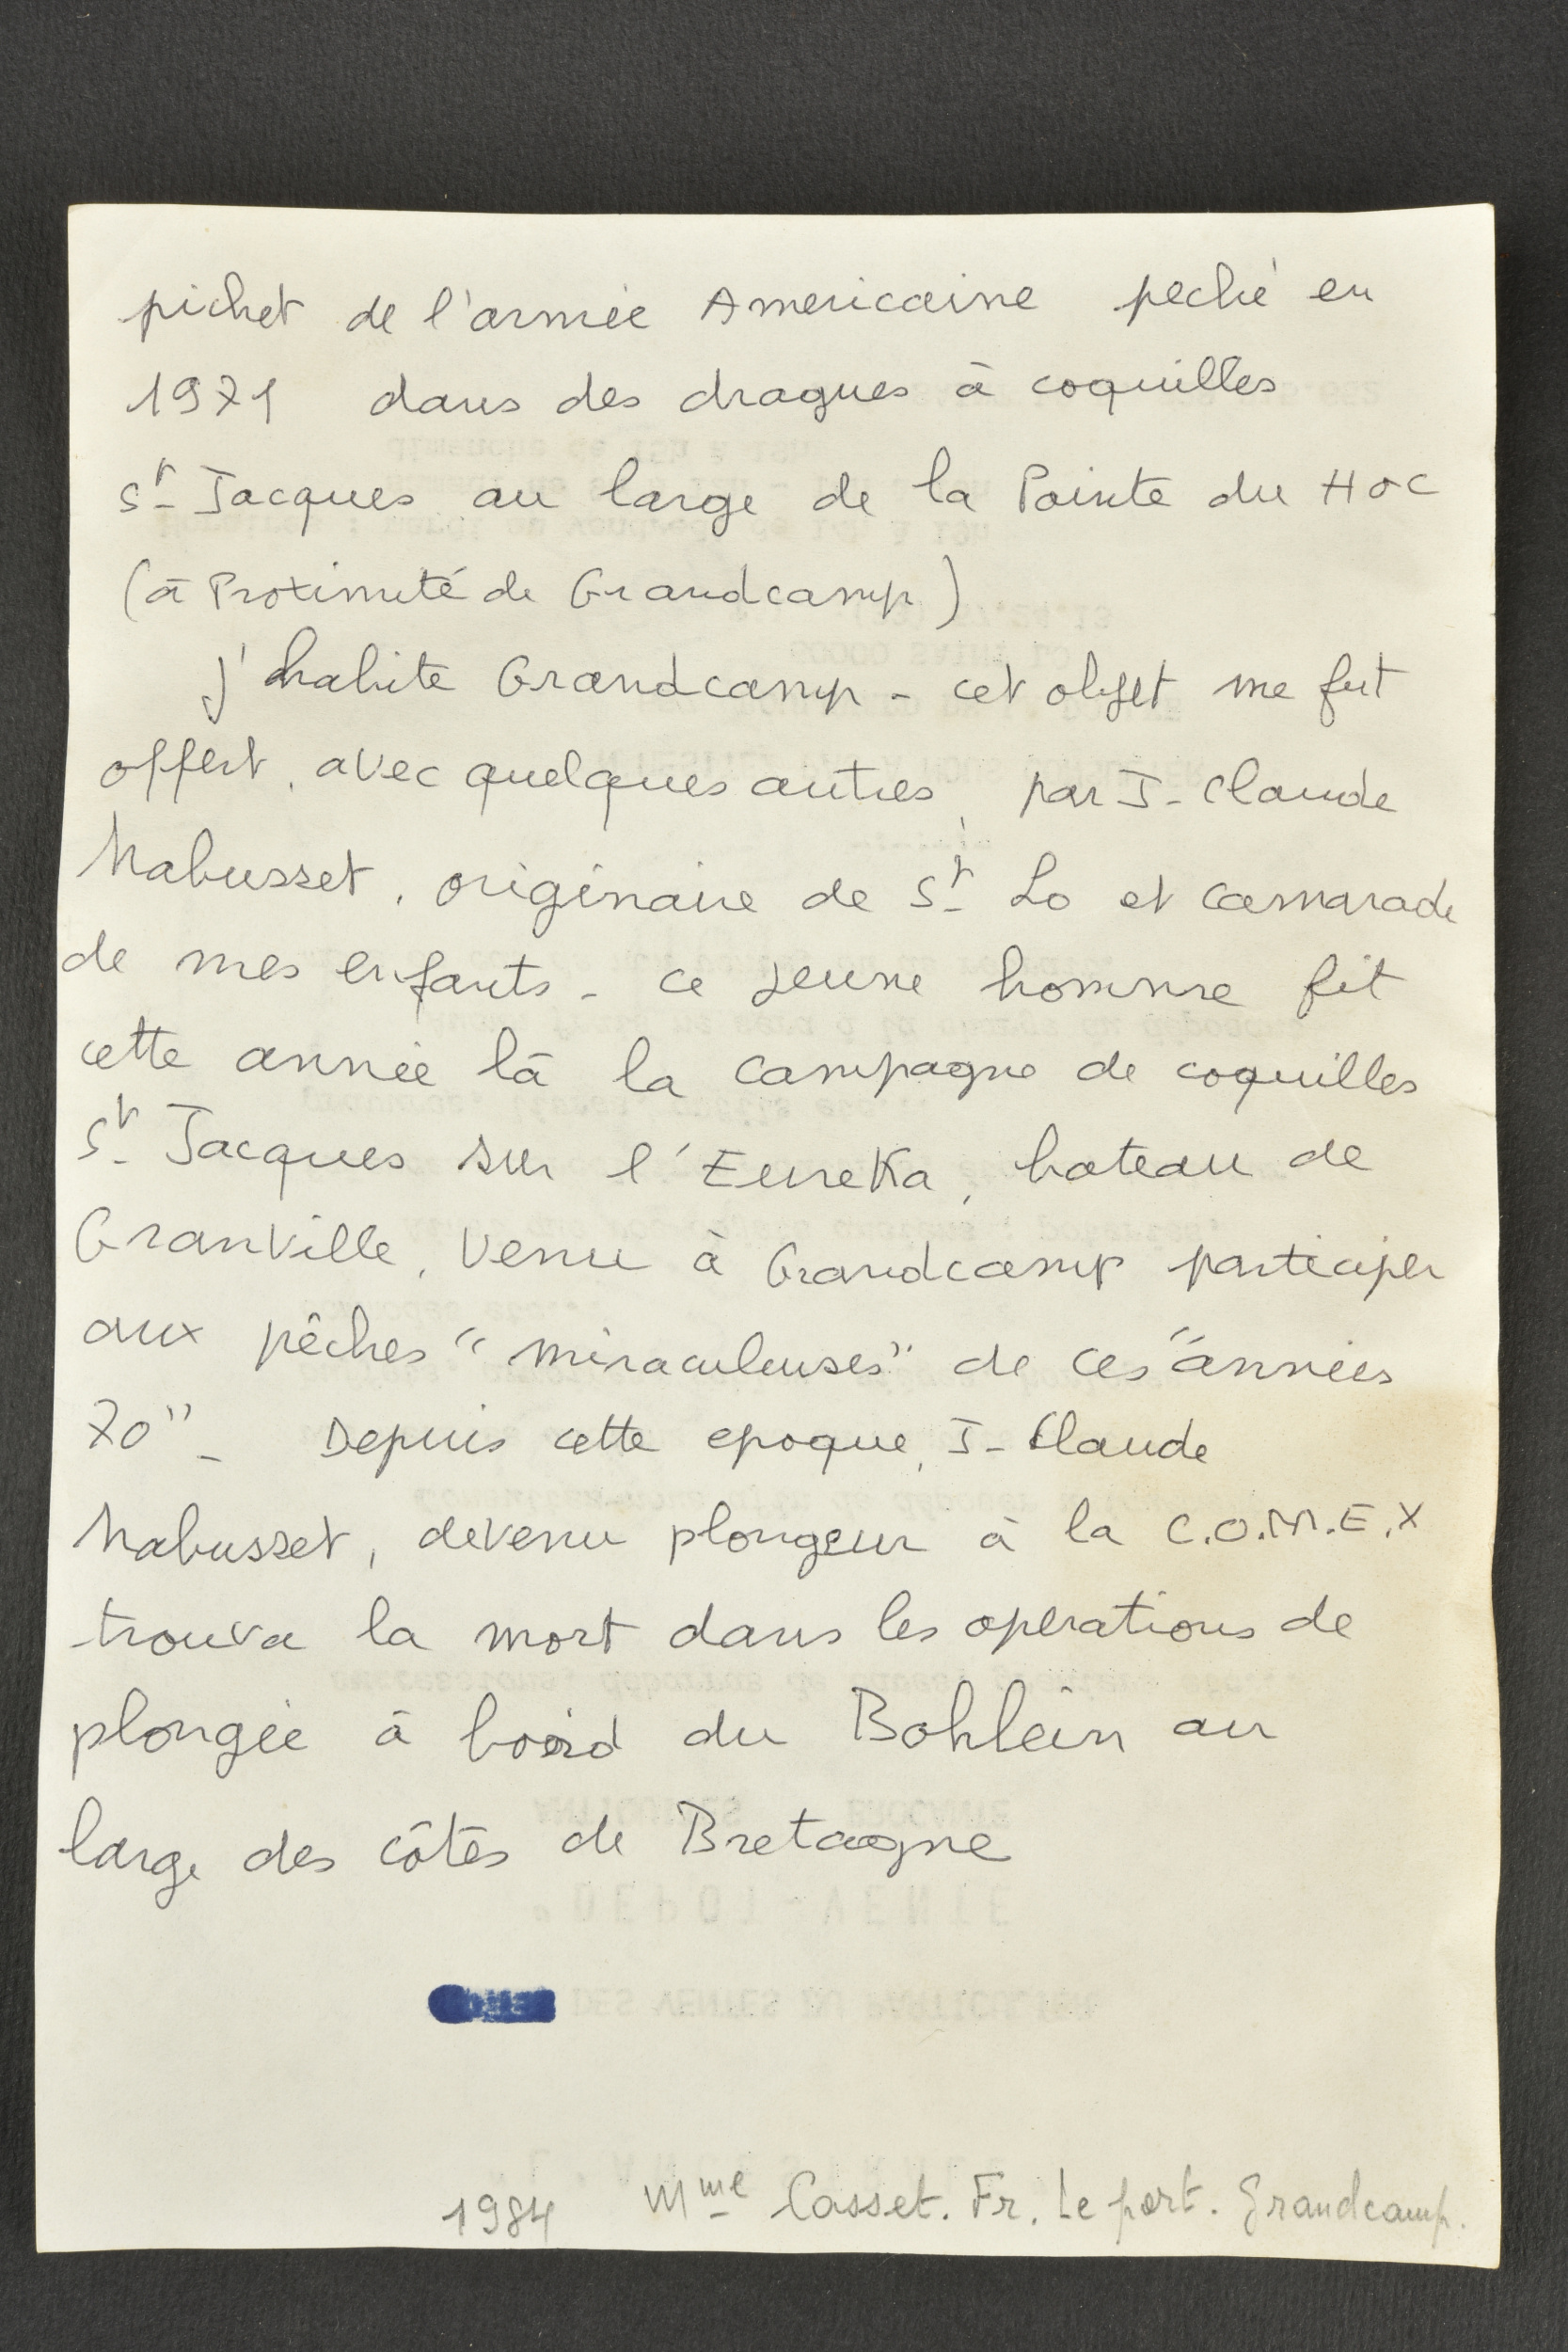 pichet de l'armée Americaine peché en
1971 dans des dragues à coquilles
St Jacques au large de la Pointe du Hoc
(à Proximité de Grandcamp)
j'habite Grandcamp - cet objet me fut
offert, avec quelques autres, par J-Claude
Mabusset, originaire de St Lo et camarade
de mes enfants - ce jeune homme fit
cette année là la campagne de coquilles
St Jacques sur l'Eureka, bateau de
Granville, venu à Grandcamp participer
aux pêches "miraculeuses" de ces "années
70" - Depuis cette epoque, J-Claude
Mabusset, devenu plongeur à la C.O.M.E.X
trouva la mort dans les operations de
plongée à bord du Bohlein au
large des côtes de Bretagne
DEPOT-VENTE
DES VENTES DU PARTICULIER
1984 Mme Casset. Fr. Le port. Grandcamp.